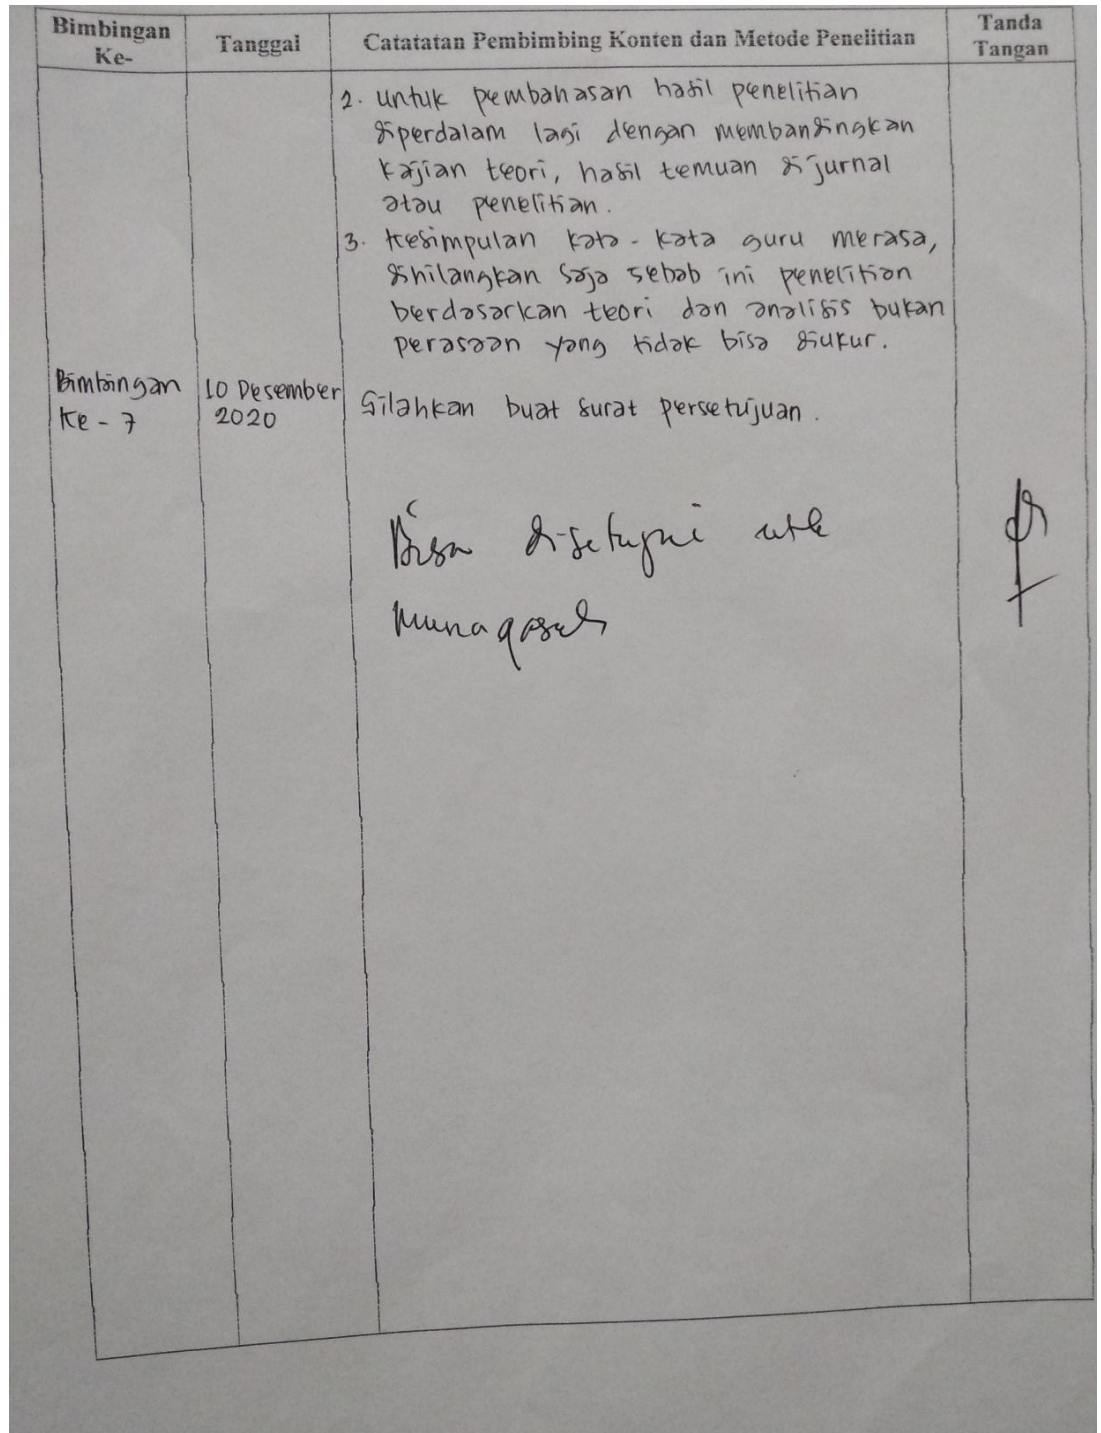 Bimbingan Ke-
Tanggal
Catatatan Pembimbing Konten dan Metode Penelitian
Tanda Tangan
2. untuk pembahasan hasil penelitian
diperdalam lagi dengan membandingkan
kajian teori, hasil temuan di jurnal
atau penelitian.
3. Kesimpulan kata-kata guru merasa,
dihilangkan saja sebab ini penelitian
berdasarkan teori dan analisis bukan
perasaan yang tidak bisa diukur.
Bimbingan
Ke - 7
10 Desember
2020
Silahkan buat surat persetujuan.
Bisa disetujui utk
munaqasah